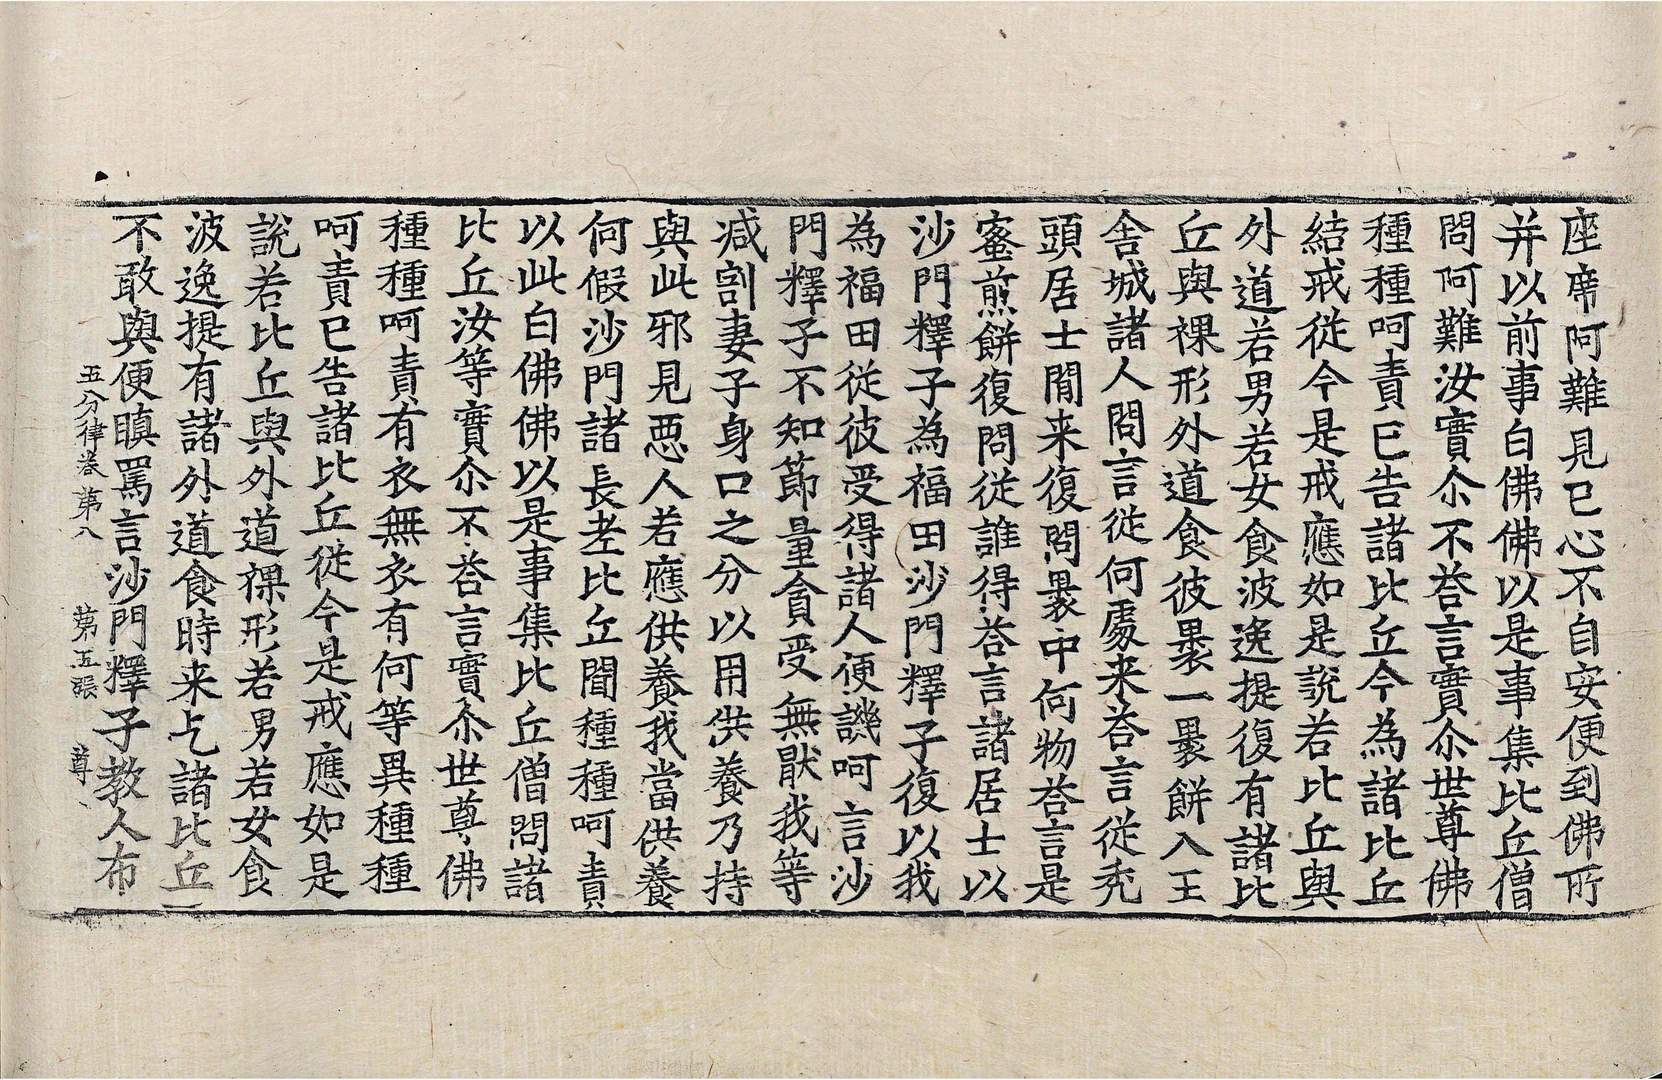 座席阿難見已心不自安便到佛所
并以前事白佛佛以是事集比丘僧
問阿難汝實尒不荅言實尒世尊佛
種種呵責已告諸比丘今為諸比丘
結戒從今是戒應如是說若比丘與
外道若男若女食波逸提復有諸比
丘與裸形外道食彼褁一褁餅入王
舍城諸人問言從何處来荅言從禿
頭居士閒来復問褁中何物荅言是
蜜煎餅復問從誰得荅言諸居士以
沙門釋子為福田沙門釋子復以我
為福田從彼受得諸人便譏呵言沙
門釋子不知節量貪受無猒我等
減割妻子身口之分以用供養乃持
與此邪見惡人若應供養我當供養
何假沙門諸長老比丘聞種種呵責
以此白佛佛以是事集比丘僧問諸
比丘汝等實尒不荅言實尒世尊佛
種種呵責有衣無衣有何等異種種
呵責已告諸比丘從今是戒應如是
說若比丘與外道裸形若男若女食
波逸提有諸外道食時来乞諸比丘
不敢與便瞋罵言沙門釋子教人布
五分律卷第八 第五張 尊